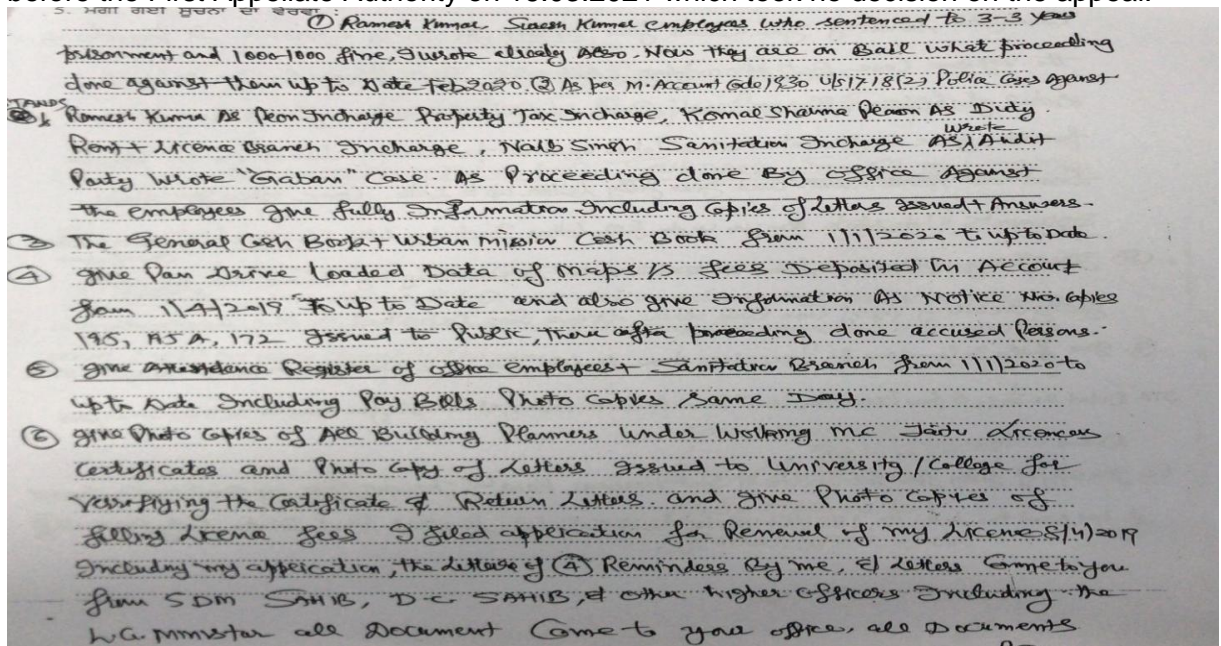 before the First Appellate Authority on 2021 which took no decision on the appeal.
5. ਮੰਗੀ ਗਈ ਸੂਚਨਾ ਦਾ ਵੇਰਵਾ
① Ramesh Kumar Kumar employees who sentenced to 3-3 years
prisonment and 1000-1000 fine, I wrote already also. Now they are on Bail what proceeding
done against them up to Date Feb 2020. ② As per M. Account Code 1930 U/S 17.18(2) Police Cases Against
Ramesh Kumar As Peon Incharge Property Tax Incharge, Komal Sharma Peon As Duty
Rent + Licence Branch Incharge, Naib Singh Sanitation Incharge As Wrote Audit
Party Wrote "Gaban" Case. As Proceeding done By office Against
the employees give fully Information Including Copies of Letters Issued + Answers.
③ The General Cash Book + Urban Mission Cash Book from 1/1/2020 to upto Date.
④ give Pan Drive loaded Data of Maps fees Deposited in Account
from 1/4/2019 to up to Date and also give Information As Notice No. Copies
195, 195A, 172 Issued to Public, There after proceeding done accused Persons.
⑤ give Attendance Register of office employees + Sanitation Branch from 1/1/2020 to
upto Date Including Pay Bills Photo Copies Same Day.
⑥ give Photo Copies of All Building Planners Under Working MC Jaitu Licences
Certificates and Photo Copy of Letters Issued to University / College for
Verifiying the Certificate & Return Letters. and give Photo Copies of
filling Licence fees I filed application for Renewal of my Licence 8/4/2019
Including my application, the Letters of ④ Reminders By me, & Letters Come to you
from SDM SAHIB, D-C SAHIB, & other higher officers Including the
L.G. Minister all Document Come to your office, all Documents